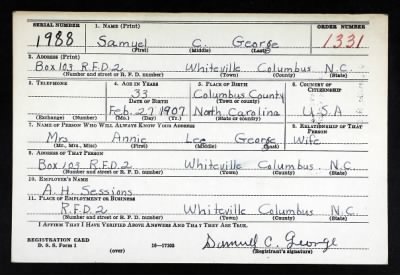 SERIAL NUMBER 1. NAME (Print) ORDER NUMBER
1988 Samuel C. George 1331
(First) (Middle) (Last)
2. ADDRESS (Print)
Box 103 R.F.D.2 Whiteville Columbus N.C.
(Number and street or R. F. D. number) (Town) (County) (State)
3. TELEPHONE 4. AGE IN YEARS 5. PLACE OF BIRTH 6. COUNTRY OF CITIZENSHIP
33 Columbus County
DATE OF BIRTH (Town or county)
Feb. 27 1907 North Carolina U.S.A
(Exchange) (Number) (Mo.) (Day) (Yr.) (State or country)
7. NAME OF PERSON WHO WILL ALWAYS KNOW YOUR ADDRESS 8. RELATIONSHIP OF THAT PERSON
Mrs Annie Lee George Wife
(Mr., Mrs., Miss) (First) (Middle) (Last)
9. ADDRESS OF THAT PERSON
Box 103 R.F.D.2 Whiteville Columbus N.C.
(Number and street or R. F. D. number) (Town) (County) (State)
10. EMPLOYER'S NAME
A. H. Sessions
11. PLACE OF EMPLOYMENT OR BUSINESS
R.F.D.2 Whiteville Columbus N.C.
(Number and street or R. F. D. number) (Town) (County) (State)
I AFFIRM THAT I HAVE VERIFIED ABOVE ANSWERS AND THAT THEY ARE TRUE.
REGISTRATION CARD
D. S. S. Form 1 (over) 16—17105 Samuel C. George
(Registrant's signature)